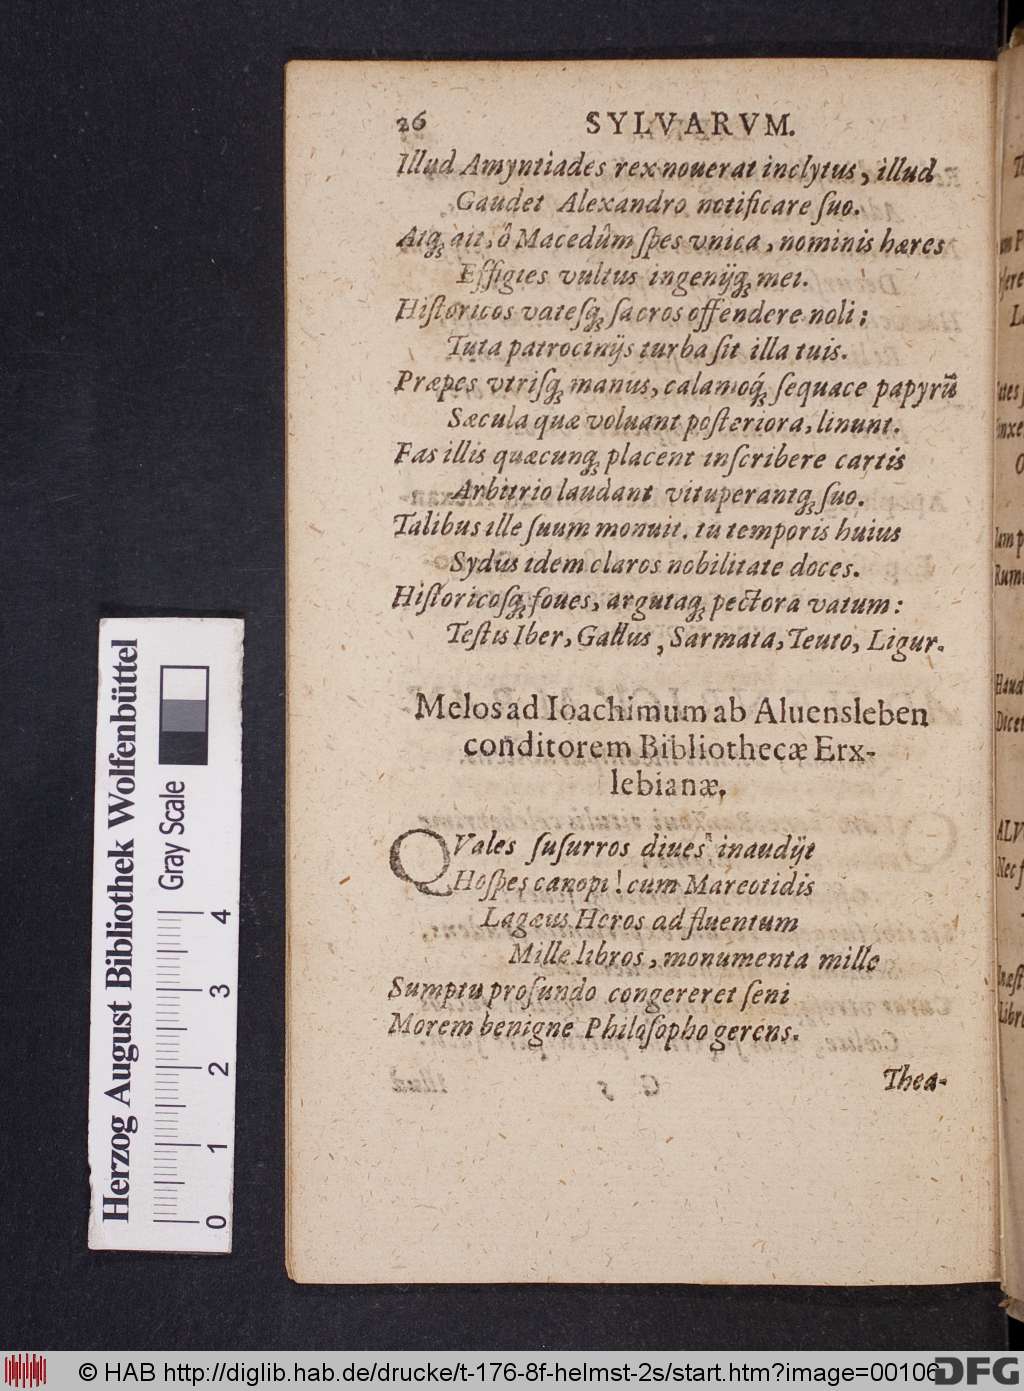 26 SYLVARVM.
Illud Amyntiades rex nouerat inclytus, illud
Gaudet Alexandro notificare ſuo.
Atq́; ait, ô Macedûm ſpes vnica, nominis hæres
Effigies vultus ingenijq́; mei.
Hiſtoricos vateſq́; ſacros offendere noli;
Tuta patrocinijs turba ſit illa tuis.
Præpes vtriſq́; manus, calamoq́; ſequace papyrũ
Sæcula quæ voluant poſteriora, linunt.
Fas illis quæcunq́; placent inſcribere cartis
Arbitrio laudant vituperantq́; ſuo.
Talibus ille ſuum monuit. tu temporis huius
Sydus idem claros nobilitate doces.
Hiſtoricoſq́; foues, argutaq́; pectora vatum:
Teſtis Iber, Gallus, Sarmata, Teuto, Ligur.
Melos ad Ioachimum ab Aluensleben
conditorem Bibliothecæ Erx-
lebianæ.
QVales ſuſurros diues inaudijt
Hoſpes canopi! cum Mareotidis
Lagæus Heros ad fluentum
Mille libros, monumenta mille
Sumptu profundo congereret ſeni
Morem benigne Philoſopho gerens.
Thea-
Herzog August Bibliothek Wolfenbüttel
Gray Scale
0 1 2 3 4
© HAB http://diglib.hab.de/drucke/t-176-8f-helmst-2s/start.htm?image=00106
DFG